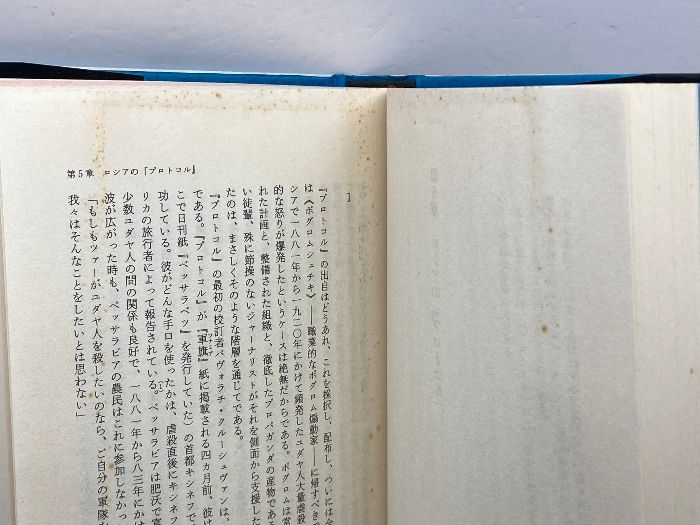 第5章 ロシアの「プロトコル」
1
『プロトコル』の出自はどうあれ、これを採択し、配布し、ついには全
は《ポグロムシュチキ》――職業的なポグロム煽動家――に帰すべきで
シアで一八八一年から一九二〇年にかけて頻発したユダヤ人大量虐殺
的な怒りが爆発したというケースは絶無だからである。ポグロムは常
れた計画と、整備された組織と、徹底したプロパガンダの産物である
い徒輩、殊に節操のないジャーナリストがそれを側面から支援した
たのは、まさしくそのような階層を通じてである。
『プロトコル』の最初の校訂者パヴォラチ・クルーシェヴァンは、
である。『プロトコル』が『軍旗』紙に掲載される四カ月前、彼は
こで日刊紙『ベッサラベツ』を発行していた）の首都キシネフで、
功している。彼がどんな手口を使ったかは、虐殺直後にキシネフ
リカの旅行者によって報告されている。ベッサラビアは肥沃で富
少数ユダヤ人の間の関係も良好で、一八八一年から八三年にかけ
波が広がった時も、ベッサラビアの農民はこれに参加しなかっ
「もしもツァーがユダヤ人を殺したいのなら、ご自分の軍隊
我々はそんなことをしたいとは思わない」